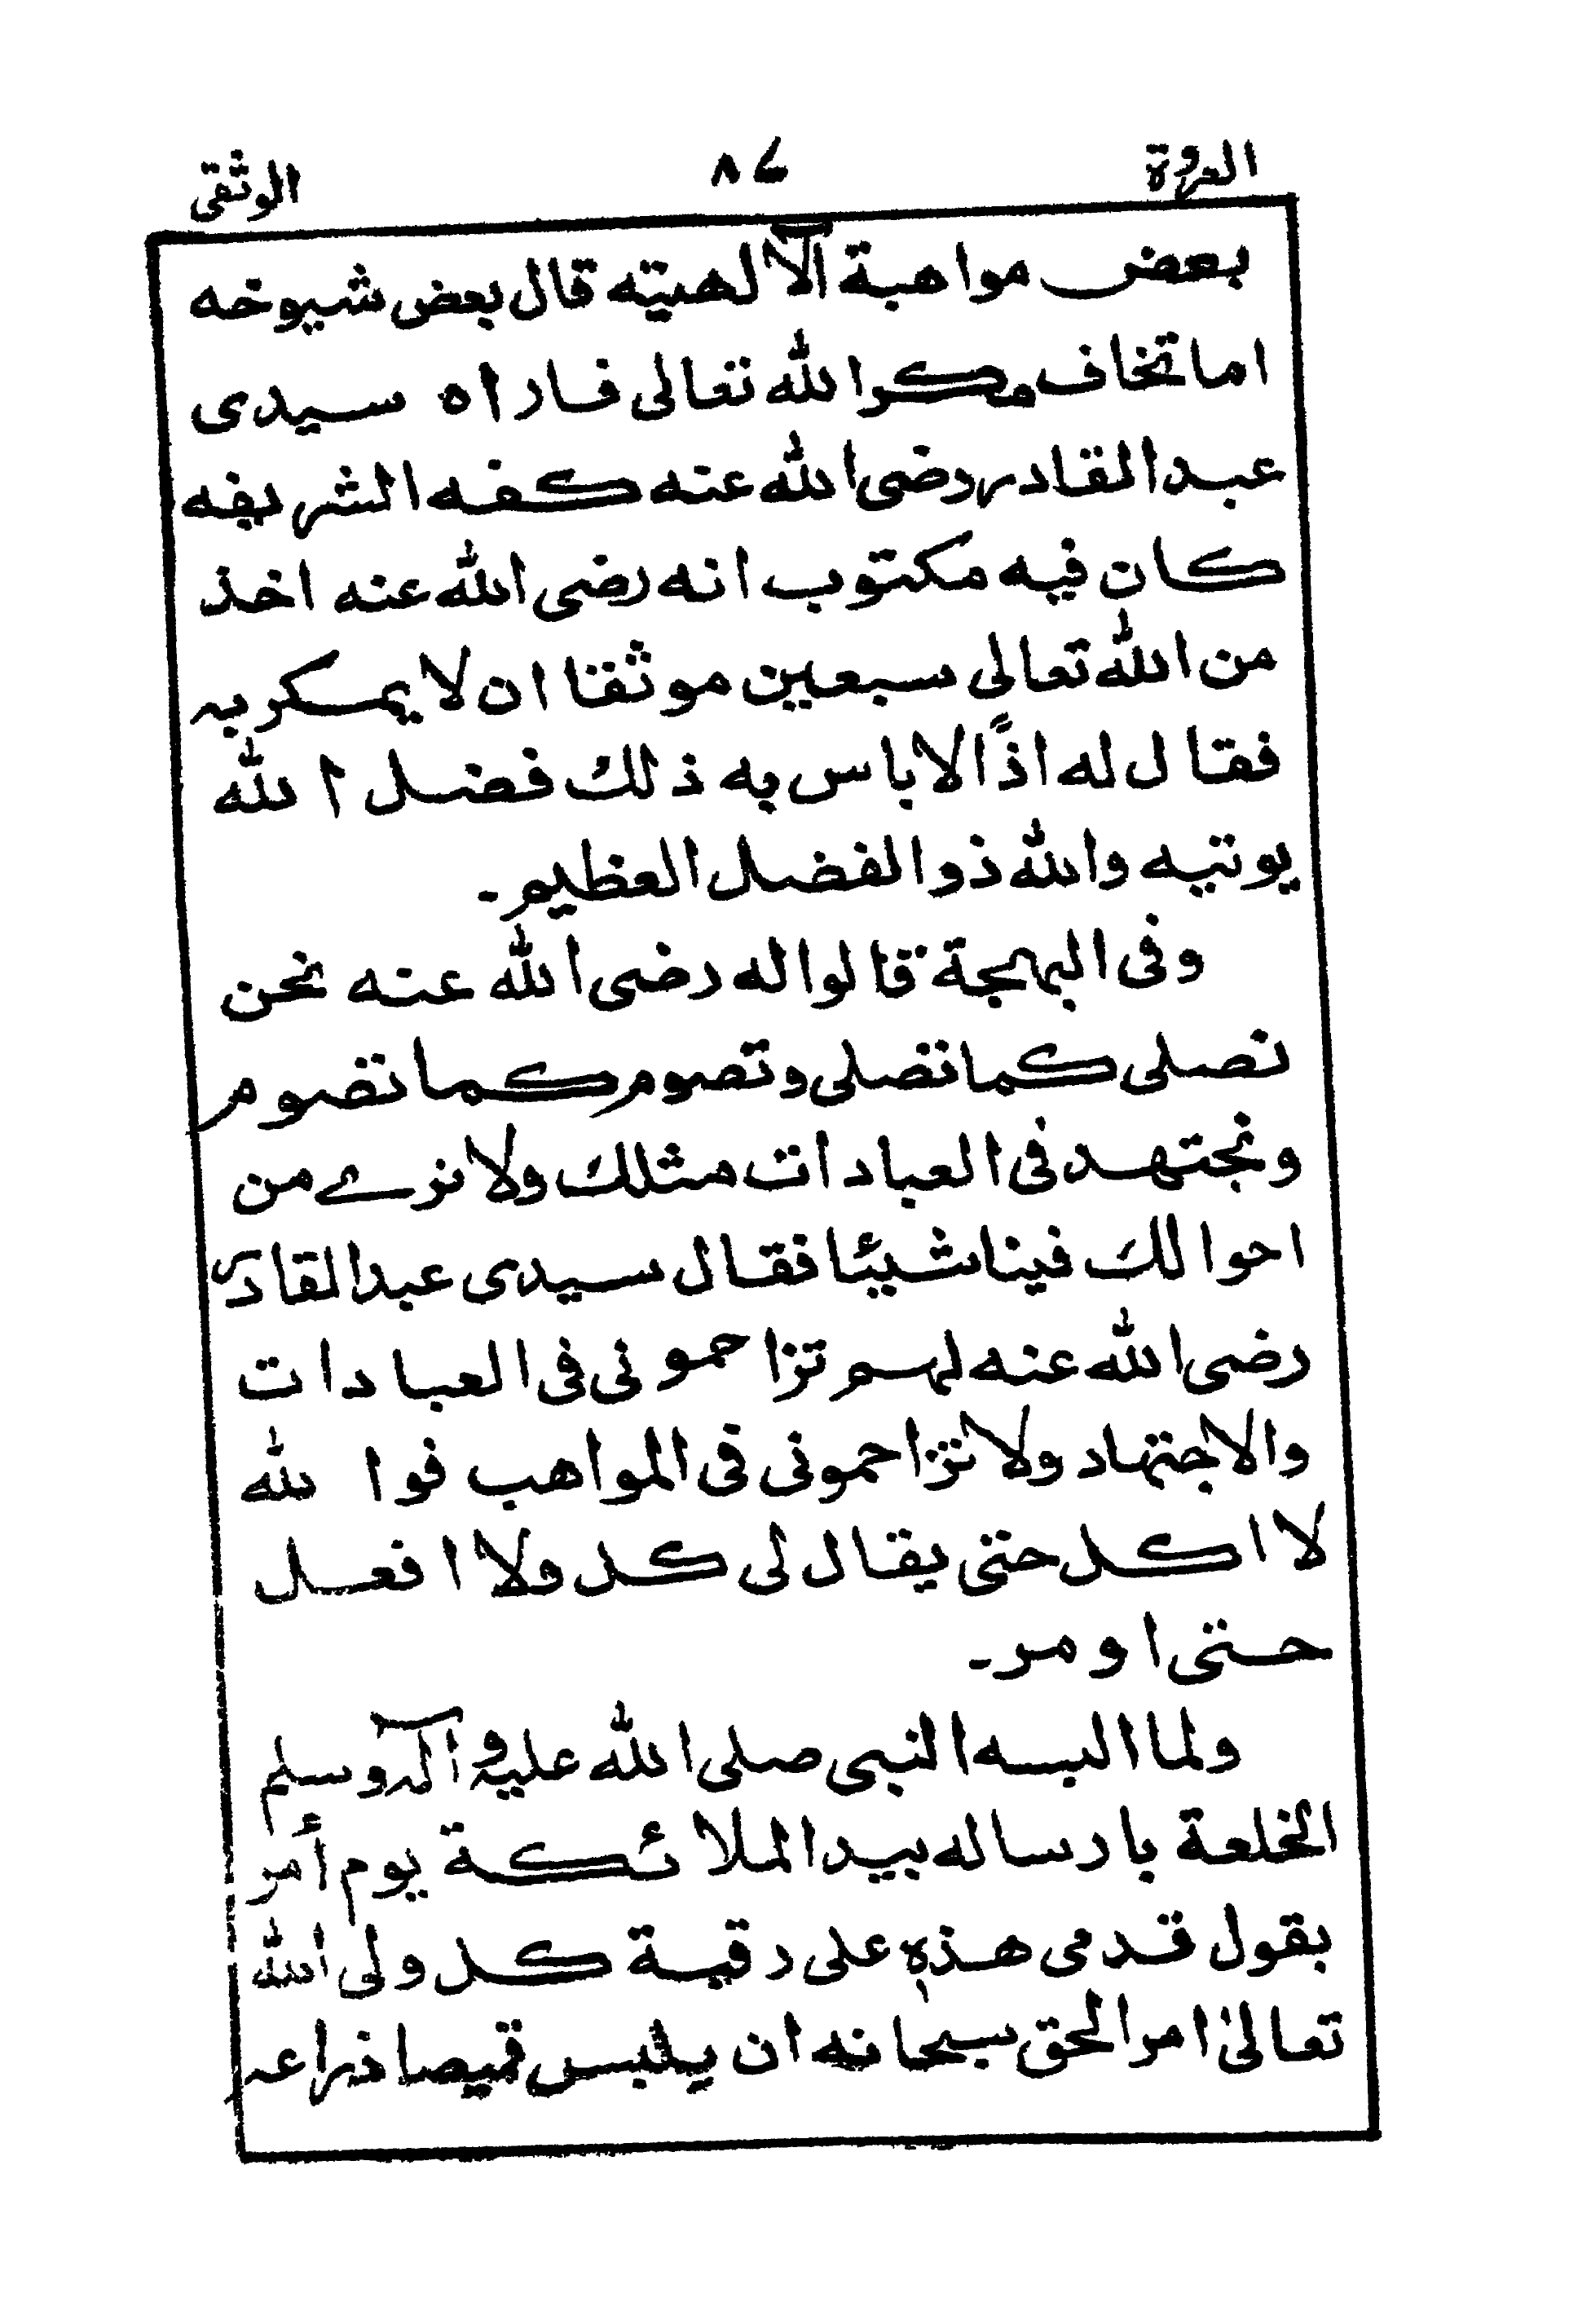 العروة ٨٤ الوثقى
بعض مواهبة الآلهيته قال بعض شيوخه
اما تخاف مكر الله تعالى فاراه سيدى
عبد القادر رضى الله عنه كفه الشريفه
كان فيه مكتوب انه رضى الله عنه اخذ
من الله تعالى سبعين موثقا ان لا يمكر به
فقال له اذًا الاباس به ذلك فضل الله
يوتيه والله ذو الفضل العظيم۔
وفى البهجة قالوا له رضى الله عنه نحن
نصلى كما تصلى وتصوم كما تضوم
ونجتهد فى العبادات مثلك ولا نرے من
احوالك فينا شيئا فقال سيدى عبد القادر
رضى الله عنه لهم تزاحمونى فى العبادات
والاجتهاد ولا تزاحمونى فى المواهب فوا لله
لا اكل حتى يقال لى كل ولا افعل
حتى اومر۔
ولما البسه النبى صلى الله عليه وآله وسلم
الخلعة بارساله بيد الملائكة يوم أمر
بقول قدمى هذه على رقبة كل ولى الله
تعالىٰ امر الحق سبحانه ان يلبس قميصا ذراعه